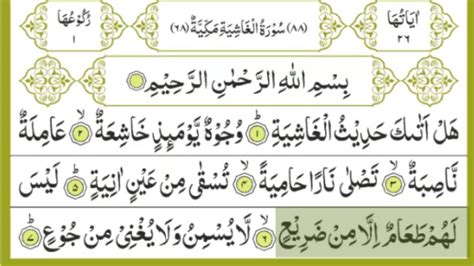 اٰیَاتُهَا ٢٦
(٨٨) سُوْرَةُ الْغَاشِیَةِ مَكِّیَّةٌ (٦٨)
رُكُوْعُهَا ١
بِسْمِ اللّٰهِ الرَّحْمٰنِ الرَّحِیْمِ
هَلْ اَتٰىكَ حَدِیْثُ الْغَاشِیَةِ ؕ﴿١﴾ وُجُوْهٌ یَّوْمَىِٕذٍ خَاشِعَةٌ ۙ﴿٢﴾ عَامِلَةٌ
نَّاصِبَةٌ ۙ﴿٣﴾ تَصْلٰى نَارًا حَامِیَةً ۙ﴿٤﴾ تُسْقٰى مِنْ عَیْنٍ اٰنِیَةٍ ؕ﴿٥﴾ لَیْسَ
لَهُمْ طَعَامٌ اِلَّا مِنْ ضَرِیْعٍ ۙ﴿٦﴾ لَّا یُسْمِنُ وَلَا یُغْنِیْ مِنْ جُوْعٍ ؕ﴿٧﴾